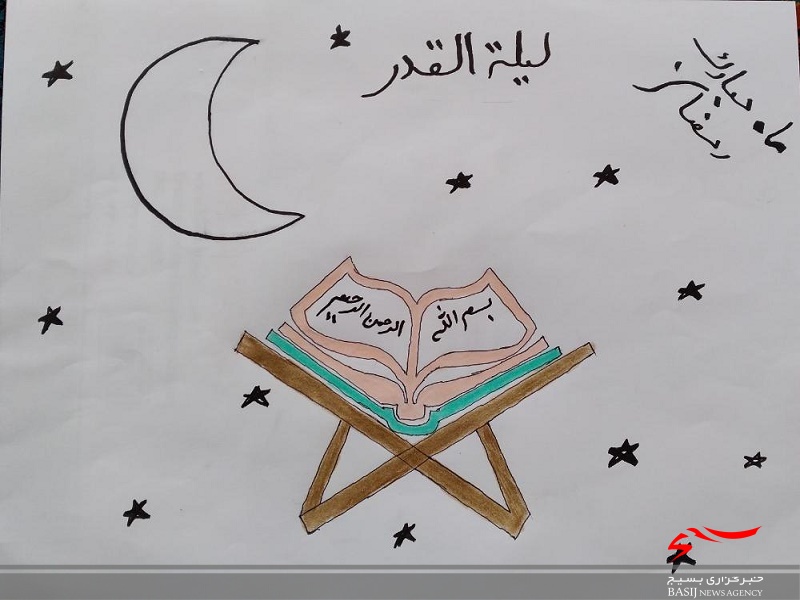 ليلة القدر
ماه مبارک
رمضان
بسم الله
الرحمن الرحیم
خبرگزاری بسیج
BASIJ NEWS AGENCY